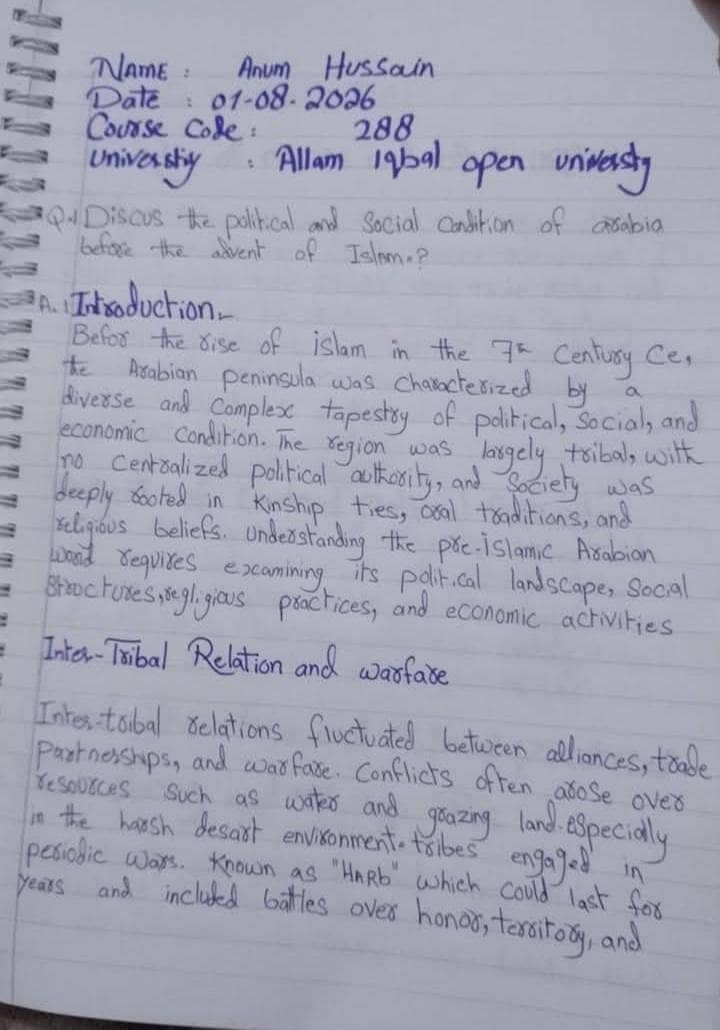 NAME : Anum Hussain
Date : 01-08-2026
Course Code : 288
Universtiy : Allam Iqbal open university
Q.1 Discus the political and Social Condition of arabia
before the advent of Islam.?
A. Introduction
Befor the rise of islam in the 7th Century Ce,
the Arabian peninsula was characterized by a
diverse and Complex tapestry of political, Social, and
economic Condition. The region was largely tribal, with
no Centralized political authority, and Society was
deeply rooted in Kinship ties, oral traditions, and
religious beliefs. Understanding the pre-islamic Arabian
requires examining its political landscape, Social
Structures, regligious practices, and economic activities
Inter-Tribal Relation and warfare
Inter-tribal relations fluctuated between alliances, trade
Partnerships, and warfare. Conflicts often arose over
resources Such as water and grazing land-especially
in the harsh desart environment. tribes engaged in
periodic wars. Known as "HARb" which could last for
years and included battles over honor, territory, and